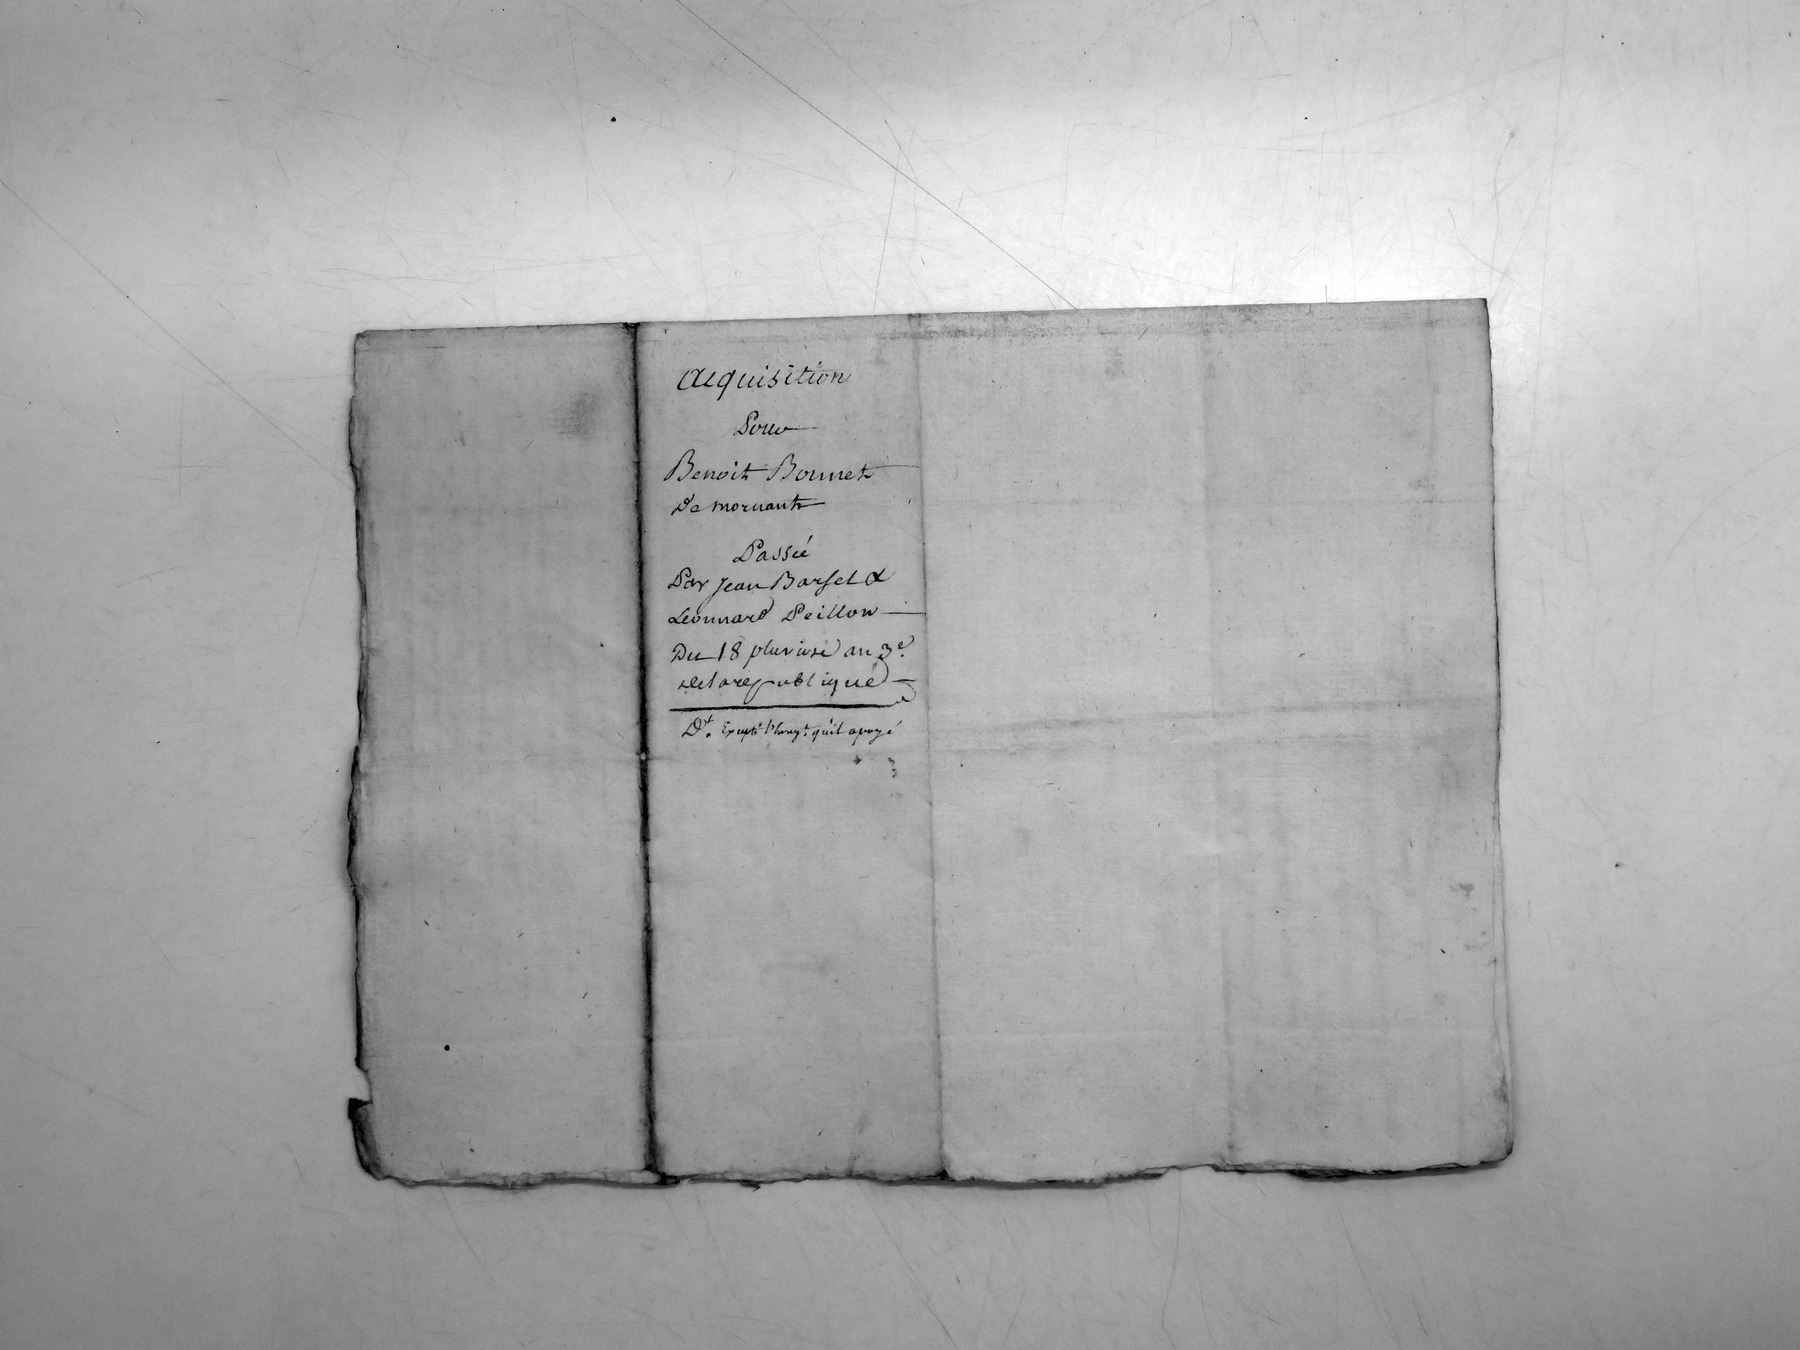 Acquisition
Pour
Benoit Bonnet
De mornant
Passée
Par Jean Barjel &
Leonnard Peillon
Du 18 pluviose an 3e.
de la republique
Dt. Excepté l'Enregt. qu'il a payé